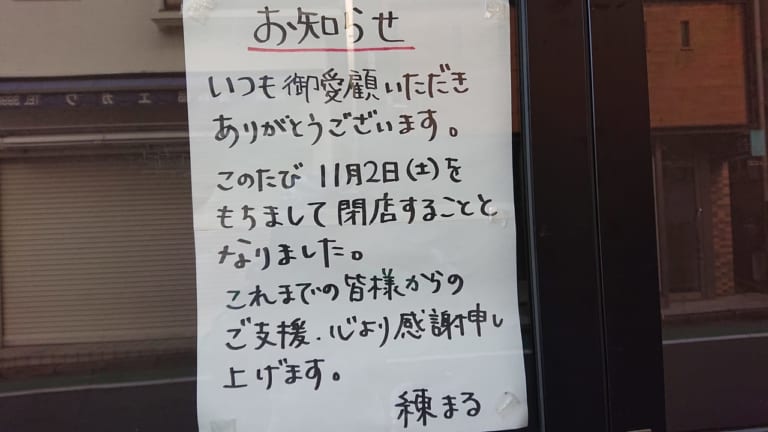 お知らせ
いつも御愛顧いただき
ありがとうございます。
このたび 11月2日(土)を
もちまして閉店することと
なりました。
これまでの皆様からの
ご支援、心より感謝申し
上げます。
練まる